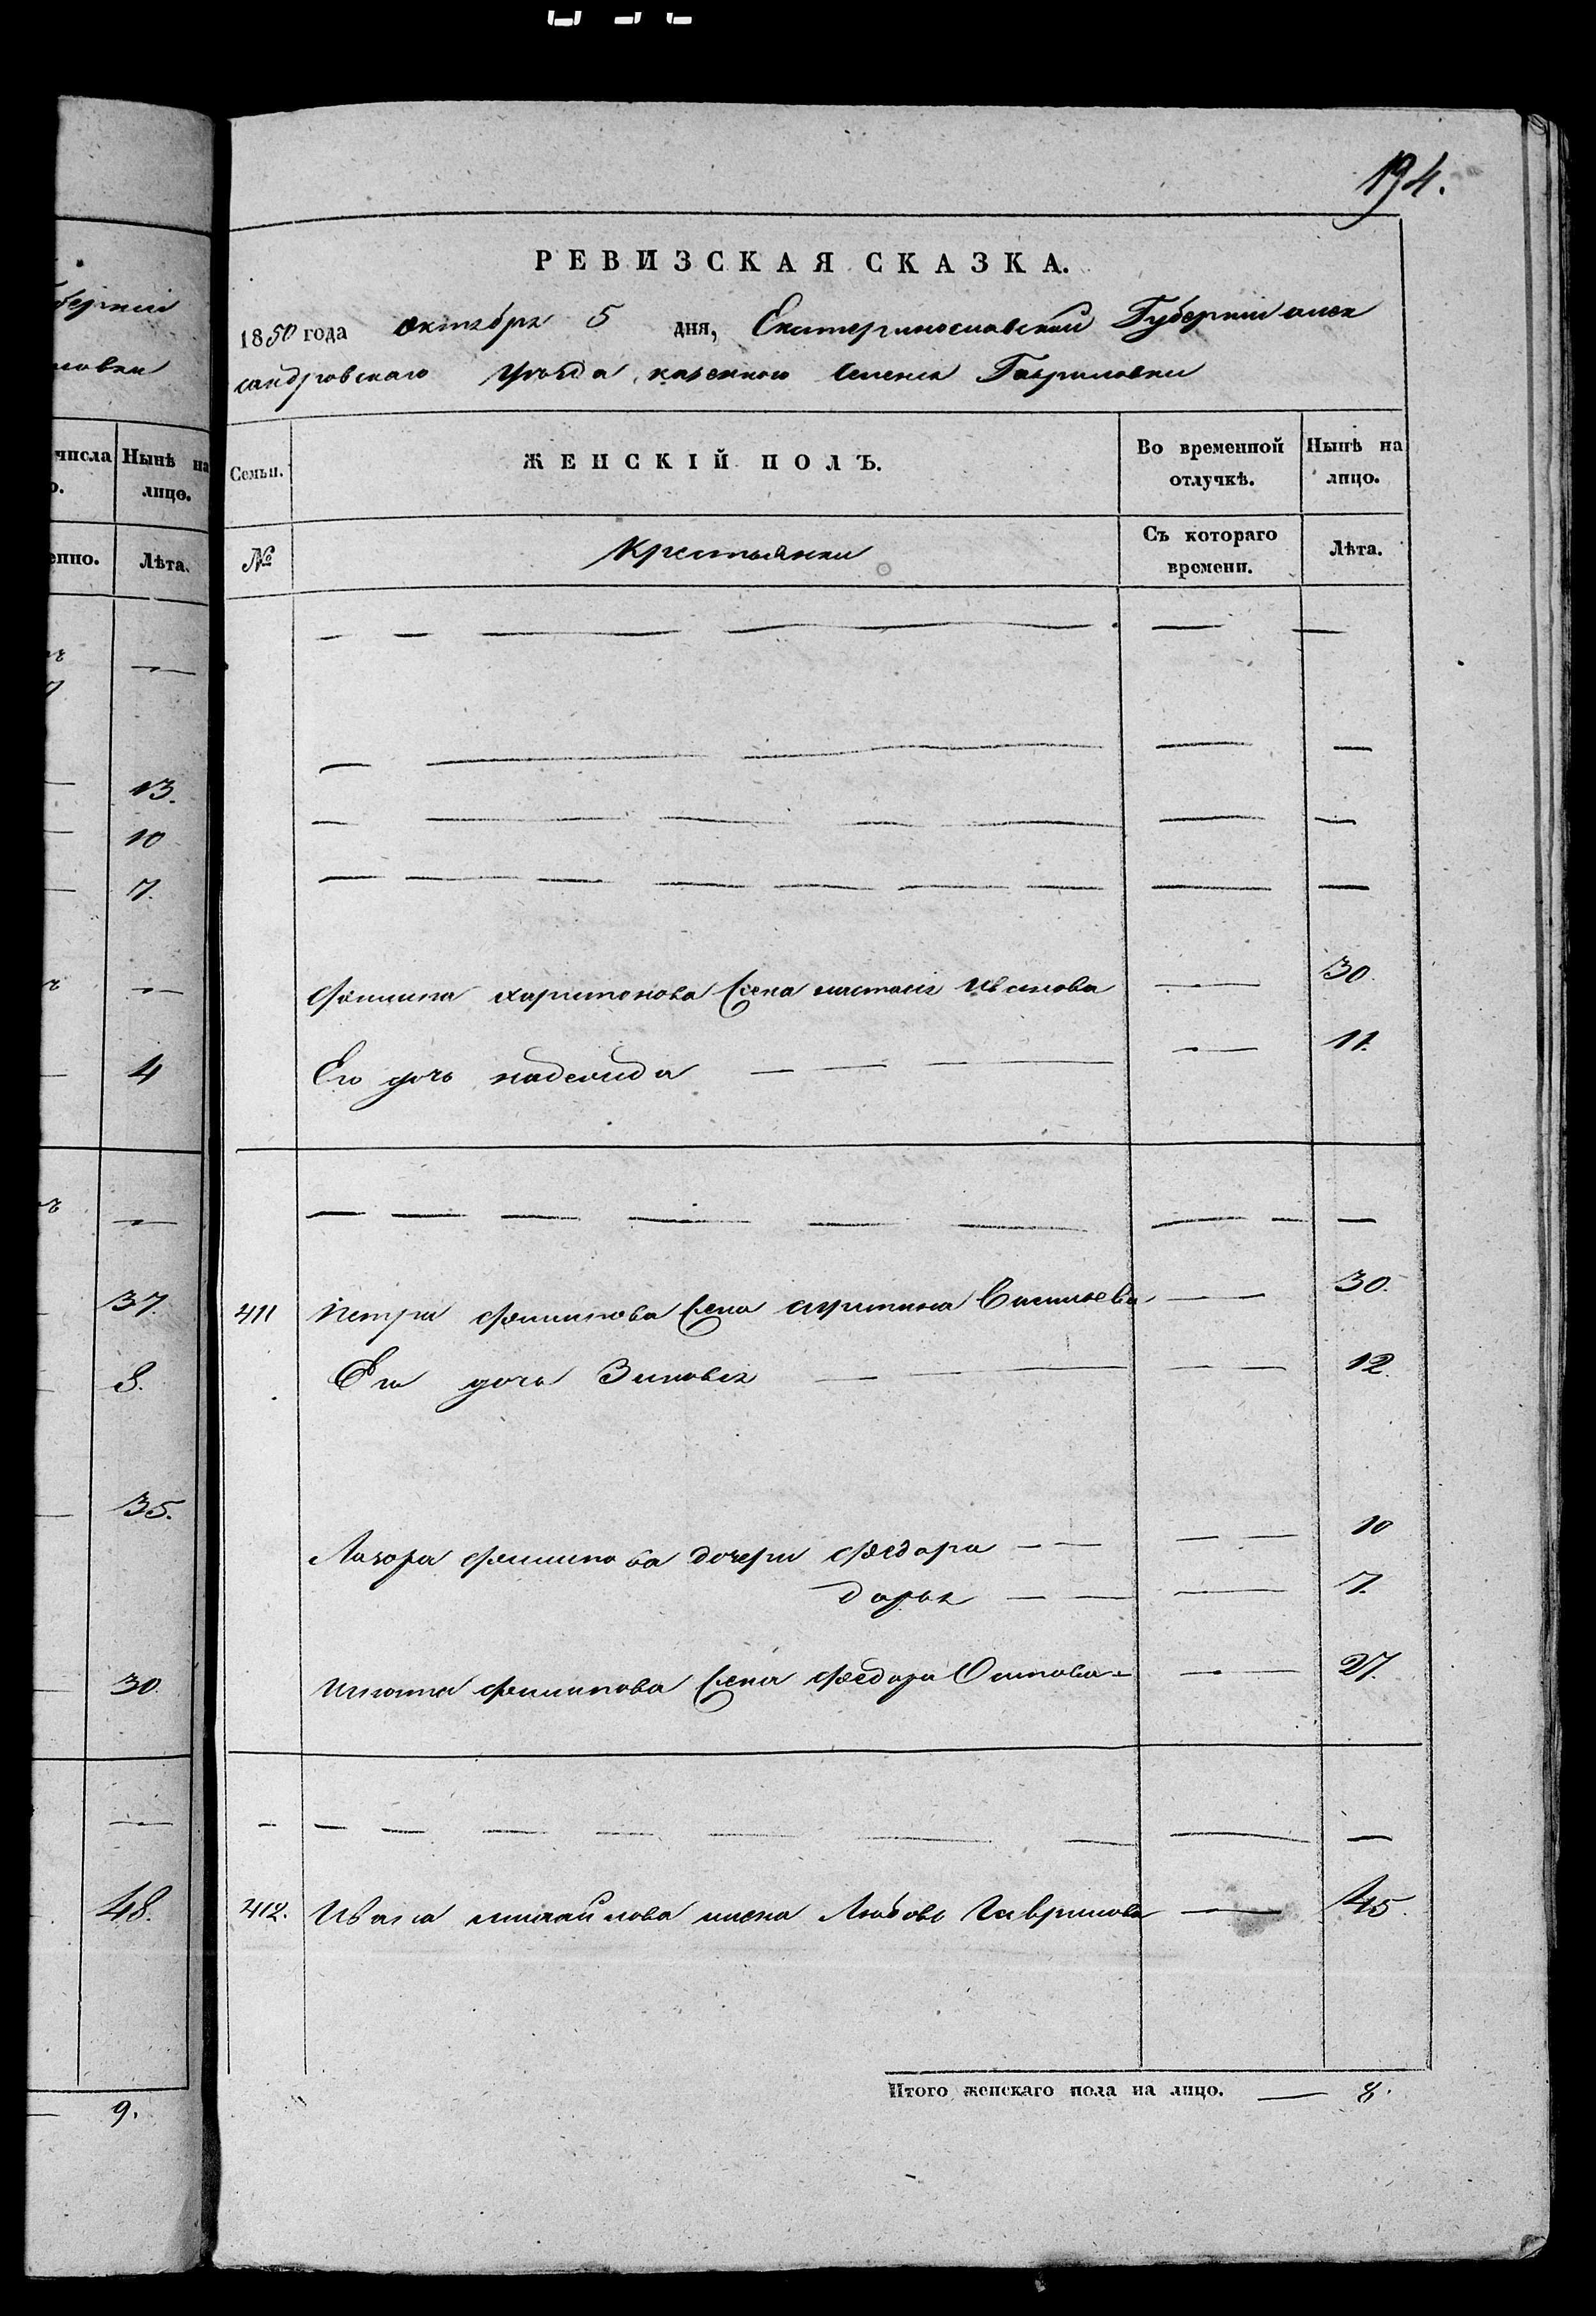 194.
РЕВИЗСКАЯ СКАЗКА.
1850 года октября 5 дня, Екатеринославской Губернии алек
сандровскаго уѣзда, казенного селенья Гавриловки
Семьи.
ЖЕНСКІЙ ПОЛЪ.
Во временной отлучкѣ.
Нынѣ на лицо.
№
Крестьянки
Съ котораго времени.
Лѣта.
филипа харитонова жена настасія Иванова — 30.
Его дочь надежда — 11.
411 петра филипова жена Васильева — 30.
Его дочь Зиновья — 12.
Лазора филипова дочери федора — 10
дарья — 7.
филипова жена федора Осипова — 27.
412. Ивана михайлова жена Любовь Гаврилова — 45.
Итого женскаго пола на лицо. — 8.
берніи
ловки
числа
Нынѣ на лицо.
енно.
Лѣта.
13.
10
7.
4
37.
8.
35.
30.
48.
9.